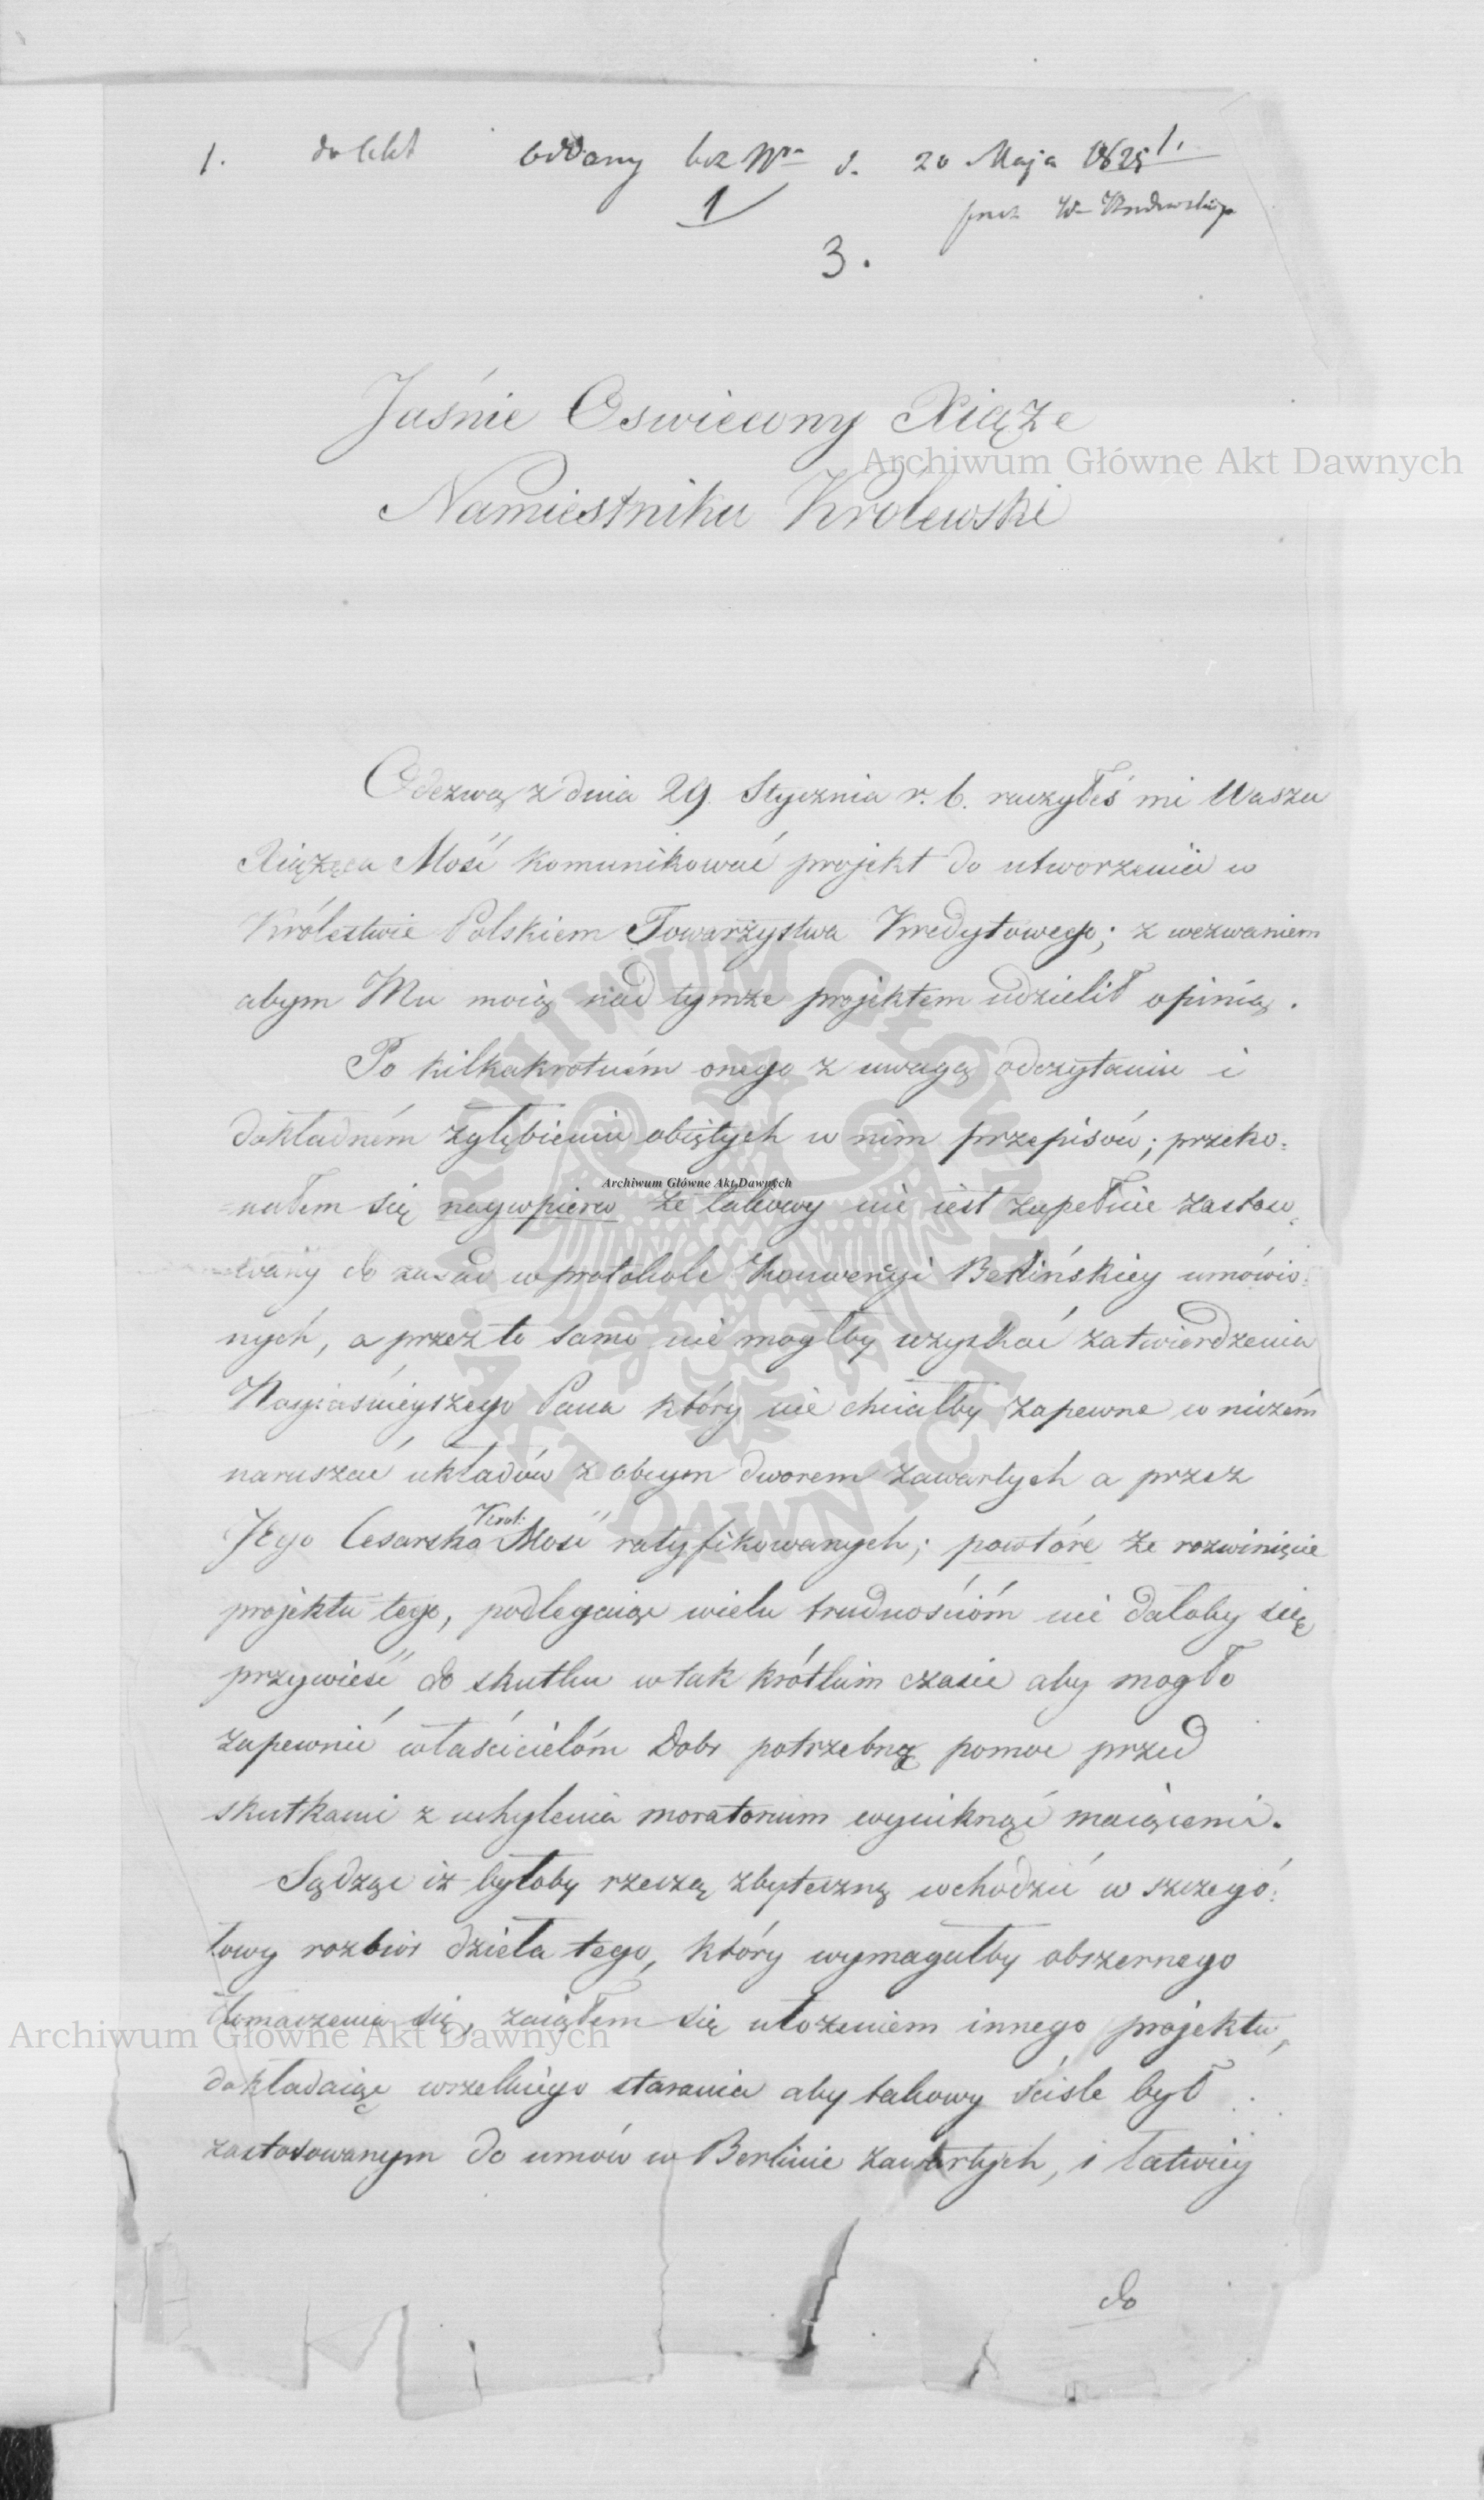 1. do Akt oddany bez Nru d. 20 Maja 1825 r.
1
przez W
3.
Jaśnie Oswiecony Xiąże
Archiwum Główne Akt Dawnych
Namiestniku Krolewski
Odezwą z dnia 29. Stycznia r. b. raczyłeś mi Wasza
Xiążęca Mość komunikować projekt do utworzenia w
Królestwie Polskiem Towarzystwa Kredytowego; z wezwaniem
abym Mu moią nad tymże projektem udzielił opinią.
Po kilkakrotném onego z uwagą odczytaniu i
dokładném zgłębieniu obiętych w nim przepisów; przeko:
Archiwum Główne Akt Dawnych
=nałem się naywpierw że takowy nie iest zupełnie zastoso
wany do zasad w protokole Konwencyi Berlińskiey umówio:
nych, a przez to samo nie mogłby uzyskać zatwierdzenia
Nayiaśnieyszego Pana który nie chciałby zapewne w niczém
naruszać układów z obcym dworem zawartych a przez
Jego Cesarsko Krol: Mość ratyfikowanych; powtóre że rozwinięcie
projektu tego, podlegaiąc wielu trudnościóm nie dałoby się
przywieść do skutku w tak krótkim czasie aby mogło
zapewnić właścicielóm Dobr potrzebną pomoc przed
skutkami z uchylenia moratorium wyniknąć maiącemi.
Sądząc iż byłoby rzeczą zbyteczną wchodzić w szczegó:
łowy rozbiór dzieła tego, który wymagałby obszernego
tłomaczenia się, zaiąłem się ułożeniem innego projektu,
Archiwum Główne Akt Dawnych
dokładaiąc wszelkiego starania aby takowy ściśle był
zastosowanym do umów w Berlinie zawartych, i łatwiey
do
ARCHIWUM GŁÓWNE AKT DAWNYCH